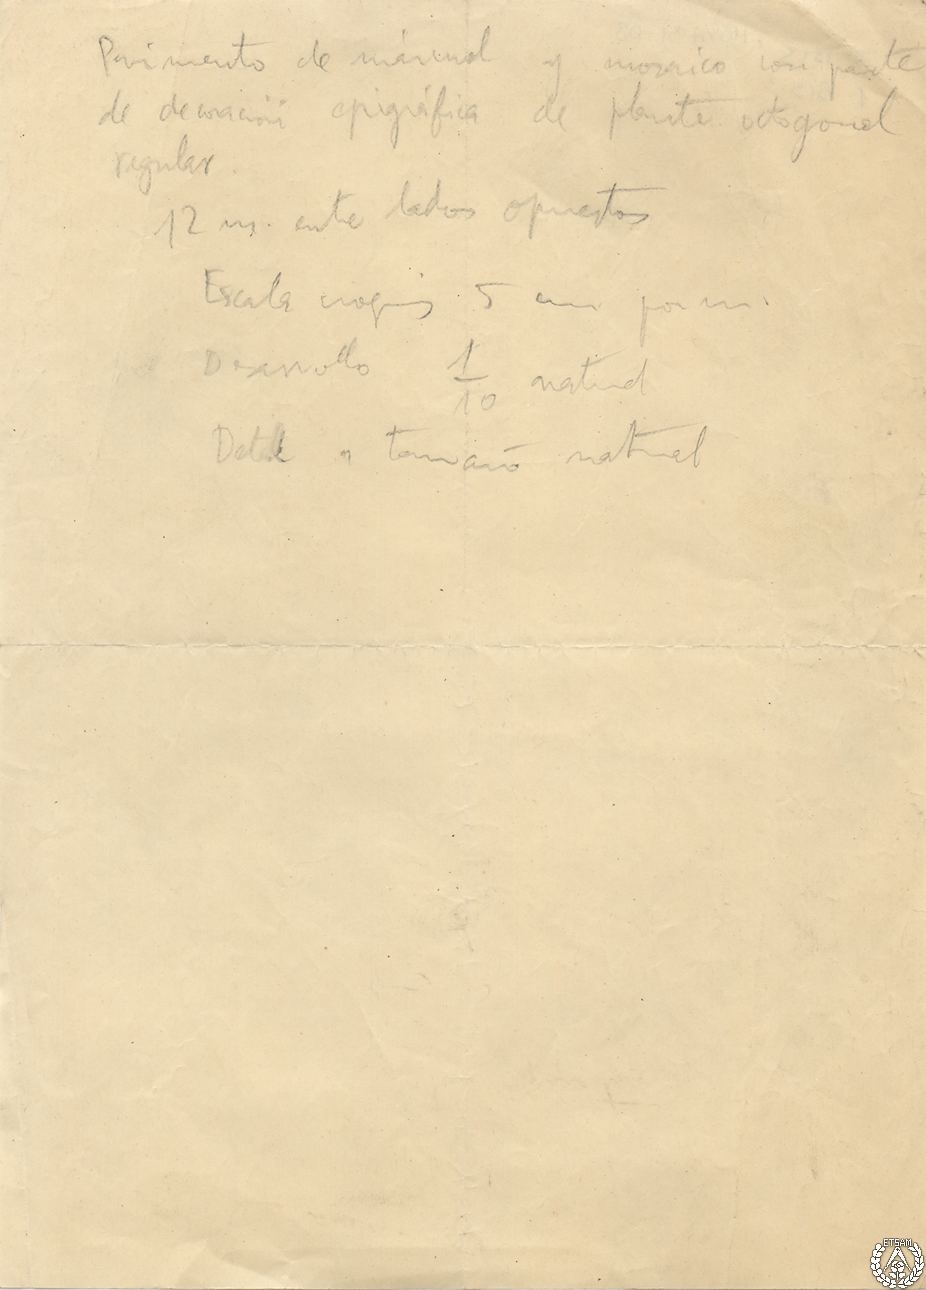 Pavimento de mármol y mosaico con parte
de decoración epigráfica de planta octogonal
regular.
12 m. entre lados opuestos
Escala croquis 5 cm por m.
Desarrollo 1/10 natural
Detalle a tamaño natural
ETSAM